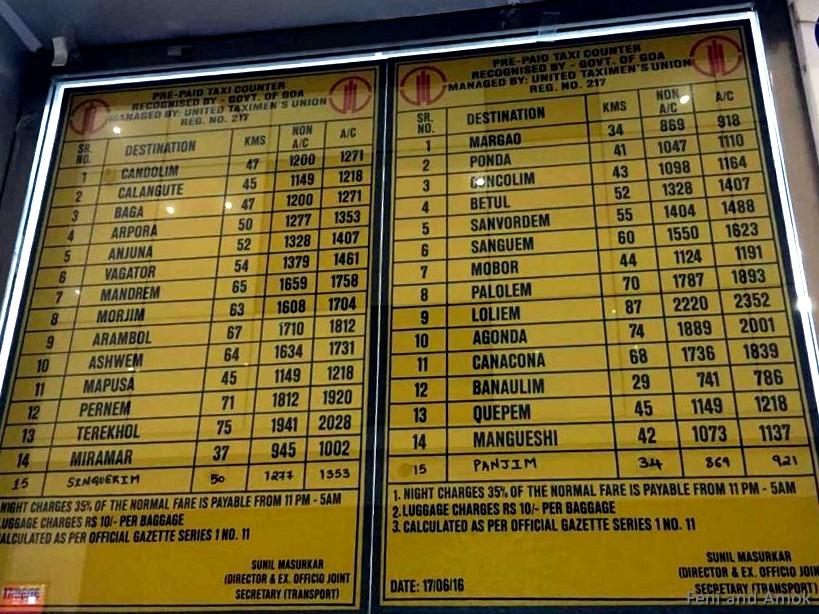 PRE-PAID TAXI COUNTER
RECOGNISED BY - GOVT. OF GOA
MANAGED BY: UNITED TAXIMEN'S UNION
REG. NO. 217
SR. NO. DESTINATION KMS NON A/C A/C
1 CANDOLIM 47 1200 1271
2 CALANGUTE 45 1149 1218
3 BAGA 47 1200 1271
4 ARPORA 50 1277 1353
5 ANJUNA 52 1328 1407
6 VAGATOR 54 1379 1461
7 MANDREM 65 1659 1758
8 MORJIM 63 1608 1704
9 ARAMBOL 67 1710 1812
10 ASHWEM 64 1634 1731
11 MAPUSA 45 1149 1218
12 PERNEM 71 1812 1920
13 TEREKHOL 75 1941 2028
14 MIRAMAR 37 945 1002
15 SINGUERIM 50 1277 1353
NIGHT CHARGES 35% OF THE NORMAL FARE IS PAYABLE FROM 11 PM - 5AM
LUGGAGE CHARGES RS 10/- PER BAGGAGE
CALCULATED AS PER OFFICIAL GAZETTE SERIES 1 NO. 11
SUNIL MASURKAR
(DIRECTOR & EX. OFFICIO JOINT
SECRETARY (TRANSPORT)
PRE-PAID TAXI COUNTER
RECOGNISED BY - GOVT. OF GOA
MANAGED BY: UNITED TAXIMEN'S UNION
REG. NO. 217
SR. NO. DESTINATION KMS NON A/C A/C
1 MARGAO 34 869 918
2 PONDA 41 1047 1110
3 CUNCOLIM 43 1098 1164
4 BETUL 52 1328 1407
5 SANVORDEM 55 1404 1488
6 SANGUEM 60 1550 1623
7 MOBOR 44 1124 1191
8 PALOLEM 70 1787 1893
9 LOLIEM 87 2220 2352
10 AGONDA 74 1889 2001
11 CANACONA 68 1736 1839
12 BANAULIM 29 741 786
13 QUEPEM 45 1149 1218
14 MANGUESHI 42 1073 1137
15 PANJIM 34 869 921
1. NIGHT CHARGES 35% OF THE NORMAL FARE IS PAYABLE FROM 11 PM - 5AM
2. LUGGAGE CHARGES RS 10/- PER BAGGAGE
3. CALCULATED AS PER OFFICIAL GAZETTE SERIES 1 NO. 11
SUNIL MASURKAR
(DIRECTOR & EX. OFFICIO JOINT
DATE: 17/06/16 SECRETARY (TRANSPORT)
Feni and Amok